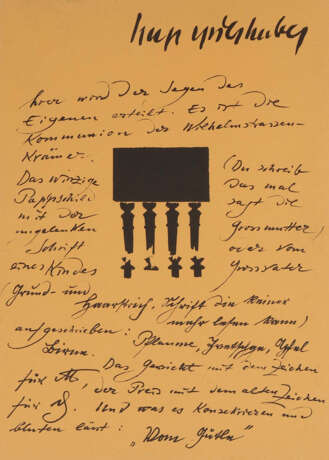 hap grieshaber
hier wird der Segen des
Eigenen erteilt. Es ist die
Kommunion der Wilhelmstrassen-
Krämer.
Das winzige
Pappschild
mit der
ungelenken
Schrift
eines Kindes
(Du schreib
das mal
sagt die
Grossmutter)
oder vom
Grossvater
(Grund- und
Haarstrich, Schrift die keiner
mehr lesen kann)
aufgeschrieben: Pflaume, Zwetschge, Apfel
Birne. Das Gewicht mit dem Zeichen
für, der Preis mit dem alten Zeichen
für. Und was es Konsekrieren und
bluten lässt: „Vom Gütle“